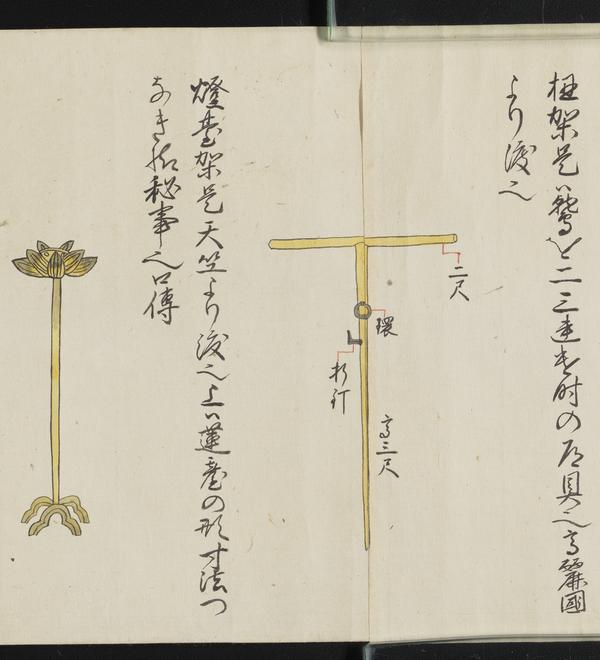 杻架是ハ鷲を二三連遣時の道具也高麗國
より渡也
二尺
環
折釘
高三尺
燈臺架是天竺より渡也上ハ蓮臺の形寸法つ
秘事也口傳